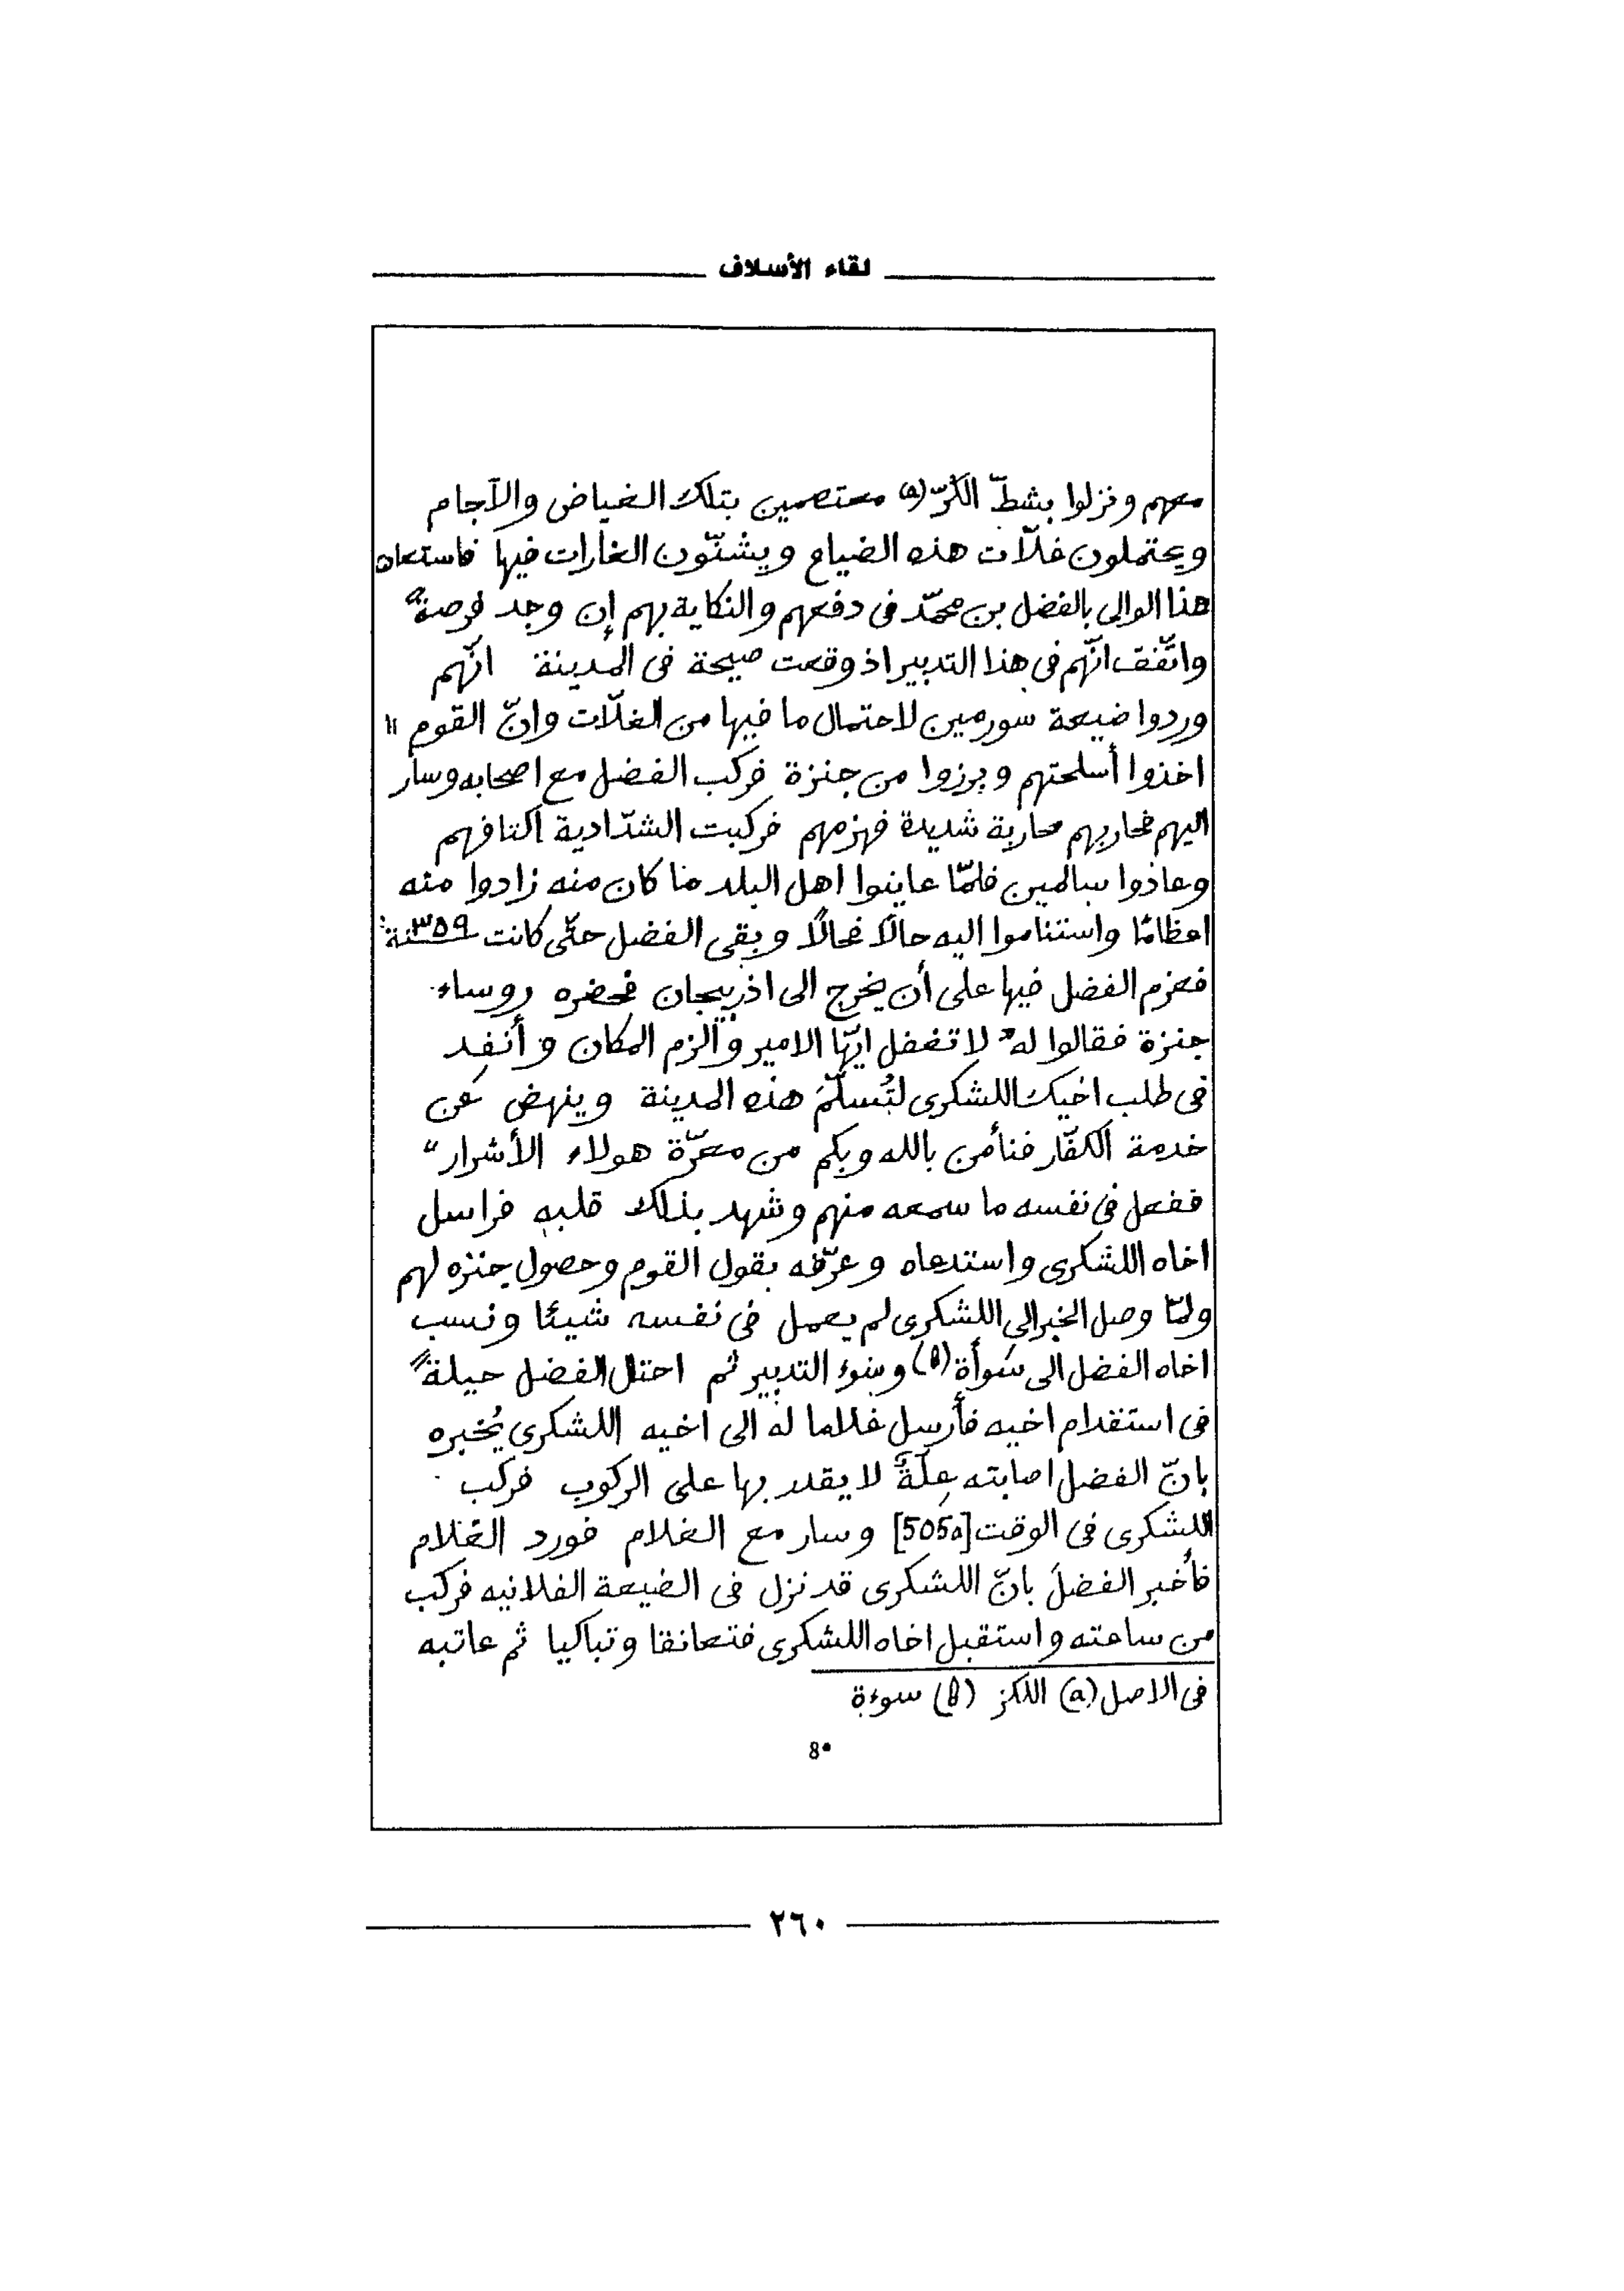 لقاء الأسلاف
معهم ونزلوا بشطّ الكرّ (a) معتصمين بتلك الغياض والآجام
ويحتملون غلّات هذه الضياع ويشنّون الغارات فيها فاستعان
هذا الوالى بالفضل بن محمّد فى دفعهم والنكاية بهم إن وجد فرصةً
واتّفق انّهم فى هذا التدبير اذ وقعت صيحة فى المدينة انّهم
وردوا ضيعة سورمين لاحتمال ما فيها من الغلّات وانّ القوم "
اخذوا أسلحتهم وبرزوا من جنزة فركب الفضل مع اصحابه وسار
اليهم فحاربهم محاربة شديدة فهزمهم فركبت الشدّادية اكتافهم
وعاذوا سالمين فلمّا عاينوا اهل البلد ما كان منه زادوا منه
اعظامًا واستناموا اليه حالًا فحالًا وبقى الفضل حتّى كانت سنة ٣٥٩
فعزم الفضل فيها على أن يخرج الى اذربيجان فحضره روساء
جنزة فقالوا له " لا تغفل ايّها الامير وألزم المكان وأنفِد
فى طلب اخيك اللشكرى لتُسلّمَ هذه المدينة وينهض عَن
خدمة الكفّار فنأمن بالله وبكم من معرّة هولاء الأشرار "
ففعل فى نفسه ما سمعه منهم وشهد بذلك قلبه فراسل
اخاه اللشكرى واستدعاه وعرّفه بقول القوم وحصول جنزه لهم
ولمّا وصل الخبر الى اللشكرى لم يعمل فى نفسه شيئا ونسب
اخاه الفضل الى سَوأة (b) وسُوء التدبير ثم احتال الفضل حيلةً
فى استقدام اخيه فأرسل غلاما له الى اخيه اللشكرى يُخبره
بانّ الفضل اصابته عِلّةٌ لا يقدر بها على الركوب فركب
اللشكرى فى الوقت [505a] وسار مع الغلام فورد الغلام
فأخبر الفضلَ بانّ اللشكرى قد نزل فى الضيعة الفلانيه فركب
من ساعته واستقبل اخاه اللشكرى فتعانقا وتباكيا ثم عاتبه
فى الاصل (a) اللكز (b) سوءة
8•
٢٦٠